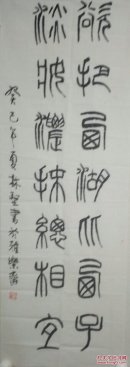 欲把西湖比西子
淡妝濃抹總相宜
癸巳年夏林堅書於雅樂齋